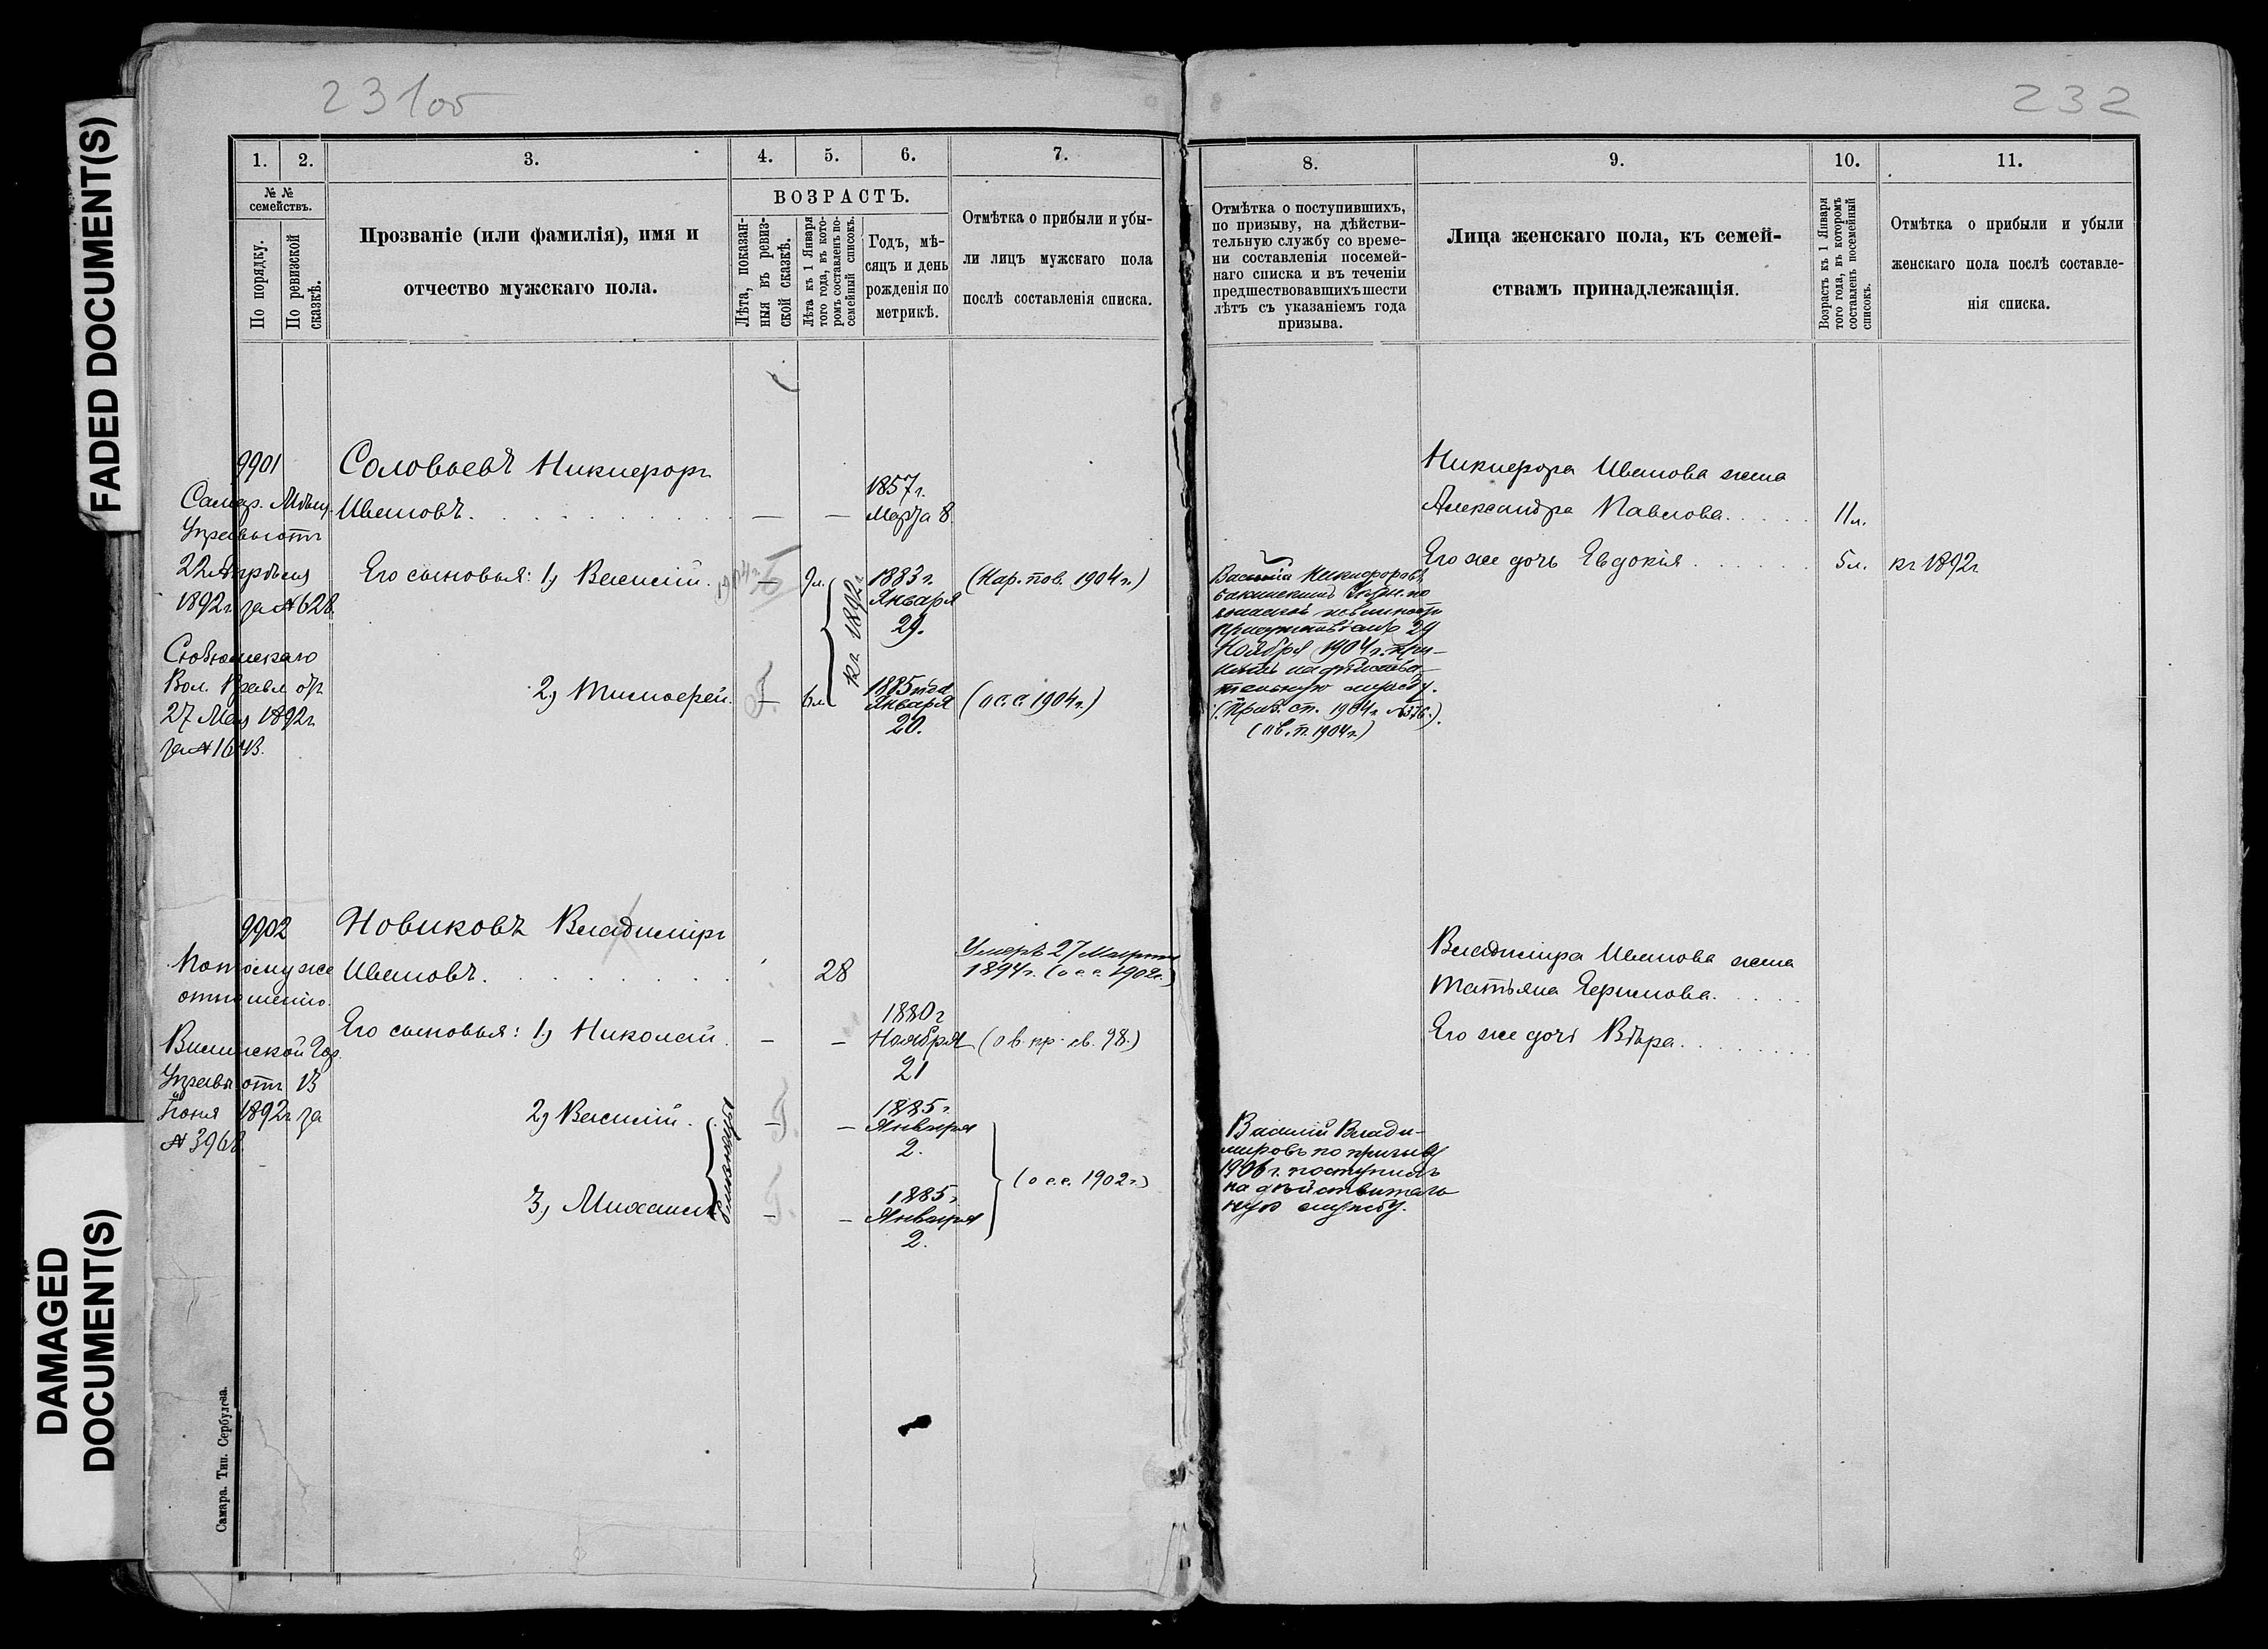 FADED DOCUMENT(S)
DAMAGED
DOCUMENT(S)
231об
1.
2.
3.
4.
5.
6.
7.
№ №
семействъ.
По порядку.
По ревизской
сказкѣ.
Прозваніе (или фамилія), имя и
отчество мужскаго пола.
ВОЗРАСТЪ.
Лѣта, показан-
ныя въ ревиз-
ской сказкѣ.
Лѣта къ 1 Января
того года, въ кото-
ромъ составленъ по-
семейный списокъ.
Годъ, мѣ-
сяцъ и день
рожденія по
метрикѣ.
Отмѣтка о прибыли и убы-
ли лицъ мужскаго пола
послѣ составленія списка.
9901
Самар. Мѣщ.
Управы отъ
22 Апрѣля
1892г. за № 628
Вол. Правл. отъ
27 Мая 1892г.
за № 1643.
Соловьевъ Никифоръ
Ивановъ.
1857 г.
Марта 8.
Его сыновья: 1) Василій.
9л.
1883 г.
Января
29.
(Кар. пов. 1904 г.)
къ 1892г.
2) Тимофей.
6л.
1885 года
Января
20.
(о с.с. 1904 г.)
9902
По тому же
отношенію.
Управы отъ 13
Іюня 1892г. за
№ 3968.
Новиковъ Владиміръ
Ивановъ.
28
Умеръ 27 Марта
1894 г. (о с.с. 1902г.)
Его сыновья: 1) Николай
1880 г
Ноября
21
(о в. пр. св. 98.)
2) Василій.
1885 г.
Января
2.
3) Михаилъ
Близнецы
1885 г.
Января
2.
(о с.с. 1902 г.)
Самара. Тип. Сербулева.
232
8.
9.
10.
11.
Отмѣтка о поступившихъ,
по призыву, на дѣйстви-
тельную службу со време-
ни составленія посемей-
наго списка и въ теченіи
предшествовавшихъ шести
лѣтъ съ указаніемъ года
призыва.
Лица женскаго пола, къ семей-
ствамъ принадлежащія.
Возрастъ къ 1 Января
того года, въ которомъ
составленъ посемейный
списокъ.
Отмѣтка о прибыли и убыли
женскаго пола послѣ составле-
нія списка.
Никифора Иванова жена
Александра Павлова.
11л.
Его же дочь Евдокія
5л.
къ 1892г
Василій Никифоровъ
Бакинскимъ по
воинской повинности
присутствіемъ 29
Ноября 1904 г. при-
нятъ на дѣйстви-
тельную службу.
(Приз. сп. 1904 г. № 376.)
(о в. п. 1904 г.)
Владиміра Иванова жена
Татьяна Ефимова.
Его же дочь Вѣра.
Василій Влади-
мировъ по призыву
1906 г. поступилъ
на дѣйствитель
ную службу.